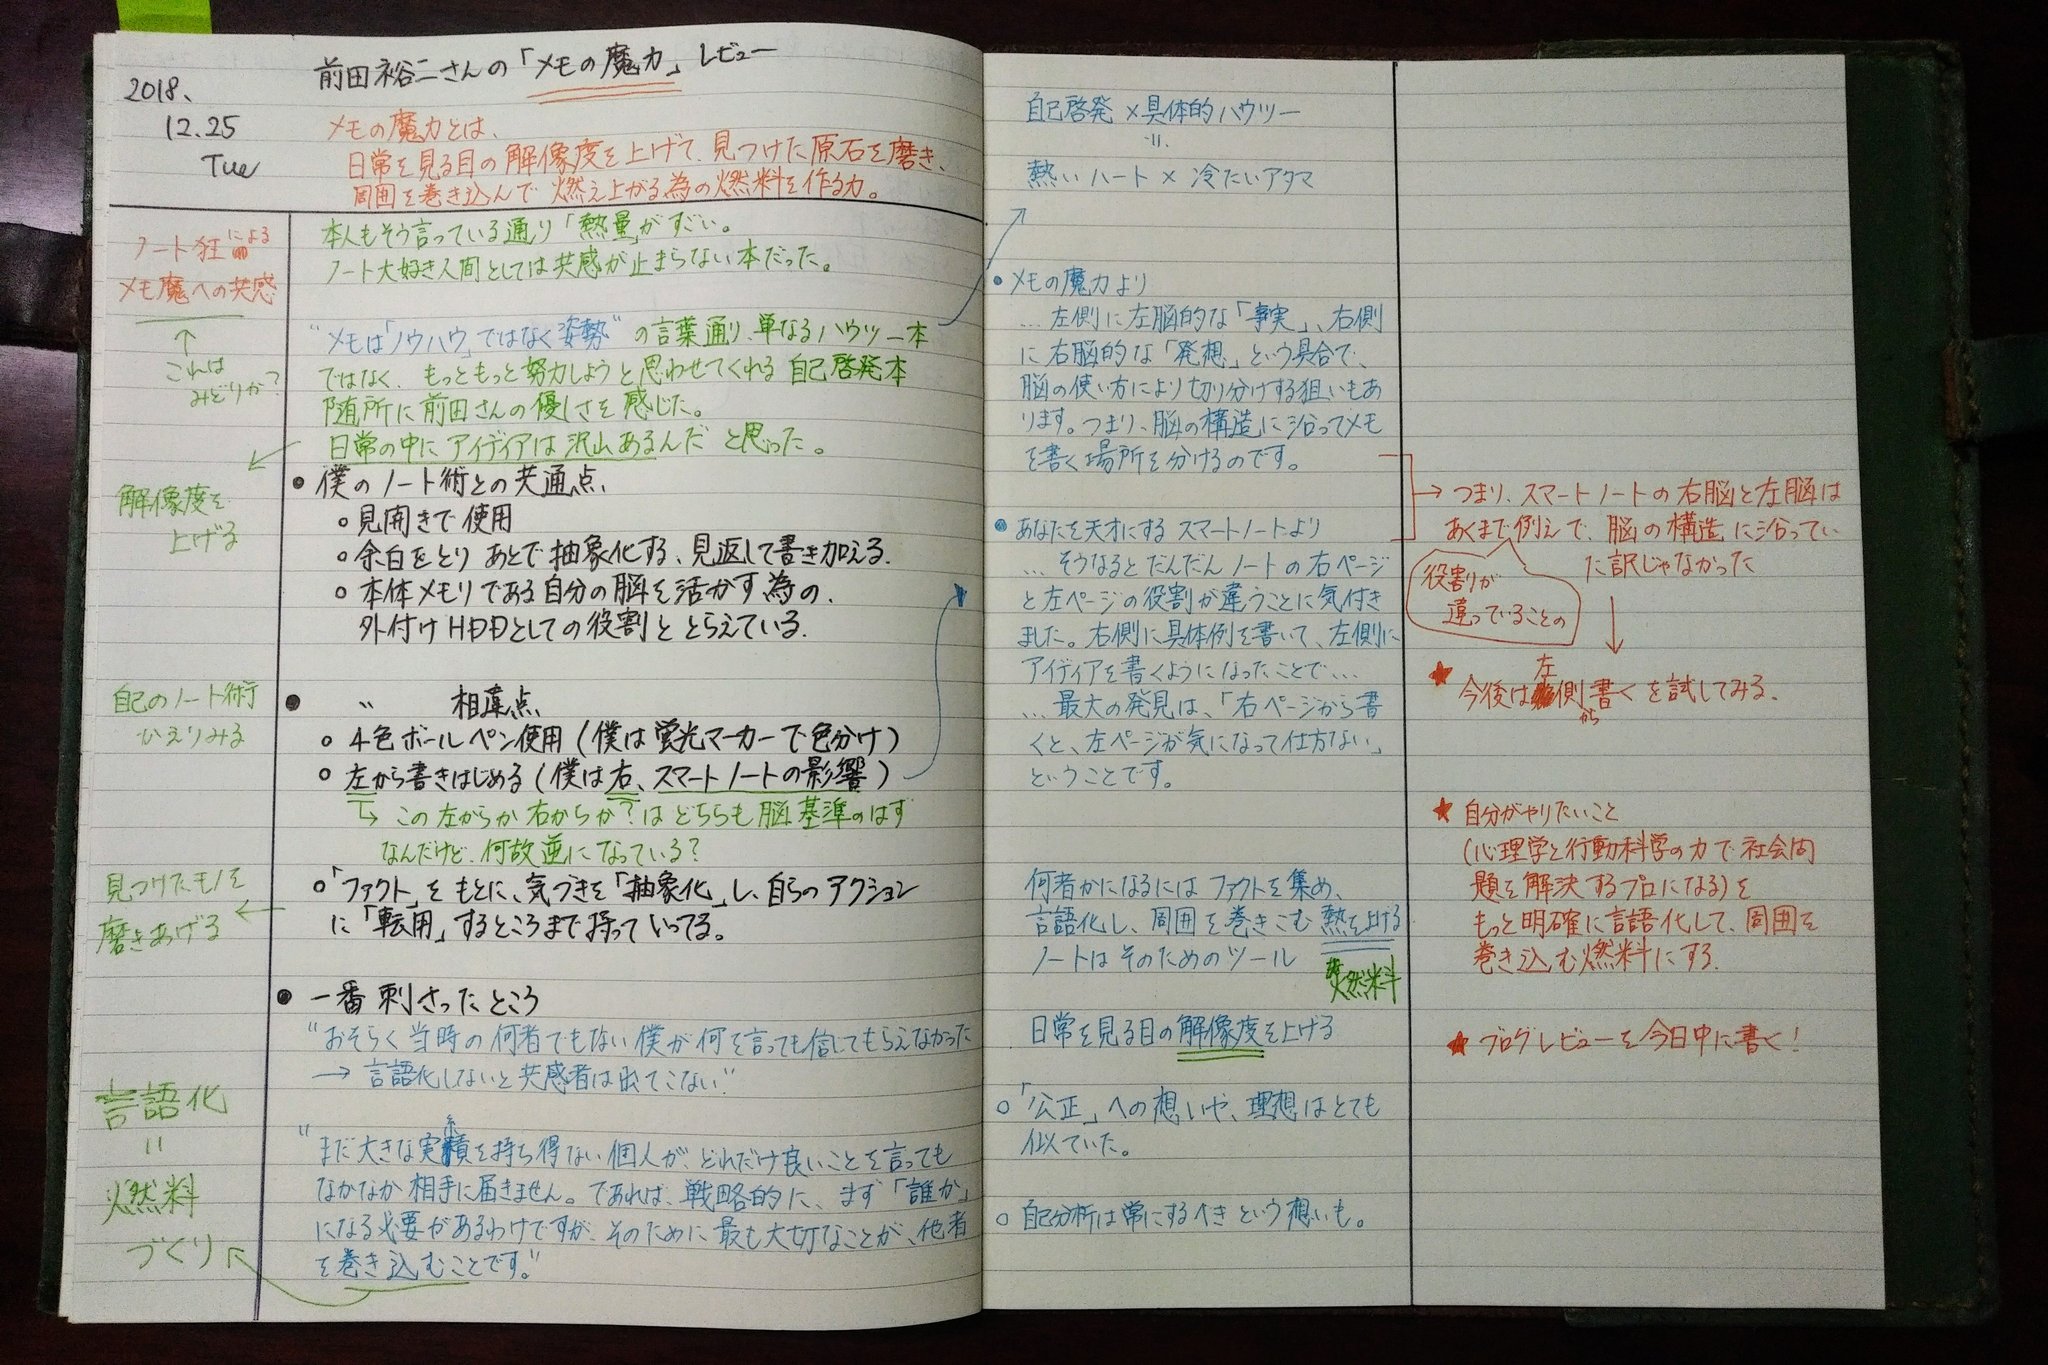 2018.
12.25
Tue
前田裕二さんの「メモの魔力」レビュー
メモの魔力とは、
日常を見る目の解像度を上げて、見つけた原石を磨き、
周囲を巻き込んで燃え上がる為の燃料を作る力。
ノート狂による
メモ魔への共感
↑
これは
みどりか?
解像度を
上げる
自己のノート術
ひえりみる
見つけたモノを
磨きあげる
言語化
=
燃料
づくり
本人もそう言っている通り「熱量」がすごい。
ノート大好き人間としては共感が止まらない本だった。
"メモは「ノウハウ」ではなく姿勢"の言葉通り、単なるハウツー本
ではなく、もっともっと努力しようと思わせてくれる自己啓発本
随所に前田さんの優しさを感じた。
日常の中にアイディアは沢山あるんだと思った。
● 僕のノート術との共通点
○ 見開きで使用
○ 余白をとりあとで抽象化する、見返して書き加える.
○ 本体メモリである自分の脳を活かす為の、
外付けHDDとしての役割ととらえている.
● 〃 相違点
○ 4色ボールペン使用(僕は蛍光マーカーで色分け)
○ 左から書きはじめる(僕は右、スマートノートの影響)
↳ この左からか右からか?はどちらも脳基準のはず
なんだけど、何故逆になっている?
○「ファクト」をもとに、気づきを「抽象化」し、自らのアクション
に「転用」するところまで持っていってる。
● 一番刺さったところ
"おそらく当時の何者でもない僕が何を言っても信してもらえなかった
→ 言語化しないと共感者は出てこない"
"まだ大きな実績を持ち得ない個人が、どれだけ良いことを言っても
なかなか相手に届きません。であれば、戦略的に、まず「誰か」
になる必要があるわけですが、そのために最も大切なことが、他者
を巻き込むことです。"
自己啓発×具体的ハウツー
=
熱いハート×冷たいアタマ
● メモの魔力より
…左側に左脳的な「事実」、右側
に右脳的な「発想」という具合で、
脳の使い方により切り分けする狙いもあ
ります。つまり、脳の構造に沿ってメモ
を書く場所を分けるのです。
● あなたを天才にするスマートノートより
…そうなるとだんだんノートの右ページ
と左ページの役割が違うことに気付き
ました。右側に具体例を書いて、左側に
アイディアを書くようになったことで…
…最大の発見は、「右ページから書
くと、左ページが気になって仕方ない」
ということです。
何者かになるにはファクトを集め、
言語化し、周囲を巻きこむ熱を上げる
ノートはそのためのツール
燃料
日常を見る目の解像度を上げる
○「公正」への想いや、理想はとても
似ていた。
○ 自己分析は常にするべきという想いも。
→ つまり、スマートノートの右脳と左脳は
あくまで例えで、脳の構造に沿ってい
た訳じゃなかった
役割が
違っていることの
↓
★ 今後は左側から書くを試してみる.
★ 自分がやりたいこと
(心理学と行動科学の力で社会問
題を解決するプロになる)を
もっと明確に言語化して、周囲を
巻き込む燃料にする.
★ ブログレビューを今日中に書く!